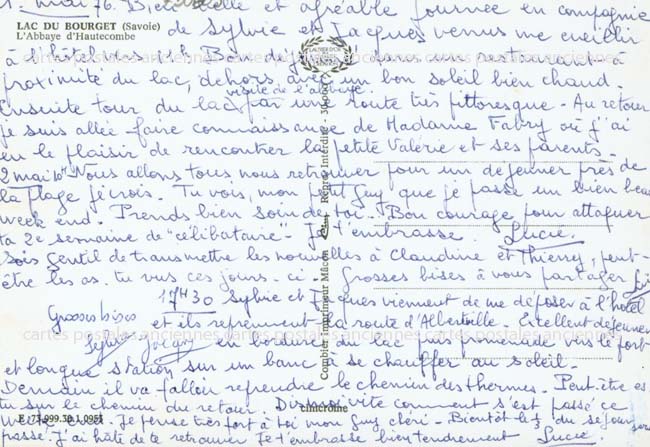 1. mai 76. B, et belle et agréable journée en compagnie
LAC DU BOURGET (Savoie)
L'Abbaye d'Hautecombe
de Sylvie et Jacques venus me cueillir
à l'hôtel dès
proximité du lac, dehors, avec un bon soleil bien chaud.
visite de l'abbaye
Ensuite tour du lac par une route très pittoresque - Au retour
je suis allée faire connaissance de Madame Fabry où j'ai
eu le plaisir de rencontrer la petite Valérie et ses parents.
2 mai Nous allons tous nous retrouver pour un déjeuner près de
la plage je crois. Tu vois, mon petit Guy que je passe un bien beau
week end. Prends bien soin de toi. Bon courage pour attaquer
ta 2e semaine de "célibataire" - Je t'embrasse. Lucie.
Sois gentil de transmettre les nouvelles à Claudine et Thierry, peut-
être les as. tu vus ces jours. ci - Grosses bises à vous partager
17H30 Sylvie et Jacques viennent de me déposer à l'hôtel
Grosses bises
et ils reprennent la route d'Albertville. Excellent déjeuner
Sylvie en bordure du lac puis promenade vers le port
et longue station sur un banc à se chauffer au soleil -
Demain il va falloir reprendre le chemin des thermes. Peut-être es
tu sur le chemin du retour. Dis moi vite comment s'est passé ce
W.E. Je pense très fort à toi mon Guy chéri - Bientôt le 1/3 du séjour sera
passé. J'ai hâte de te retrouver Je t'embrasse bien tendrement Lucie
Combier Imprimeur Mâcon
Repro. Interdite
cartes postales anciennes